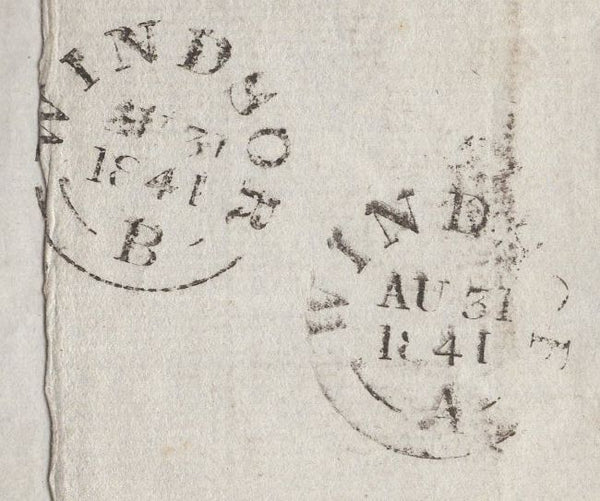 WINDSOR
AU 31
1841
B
WINDSOR
AU 31
1841
A